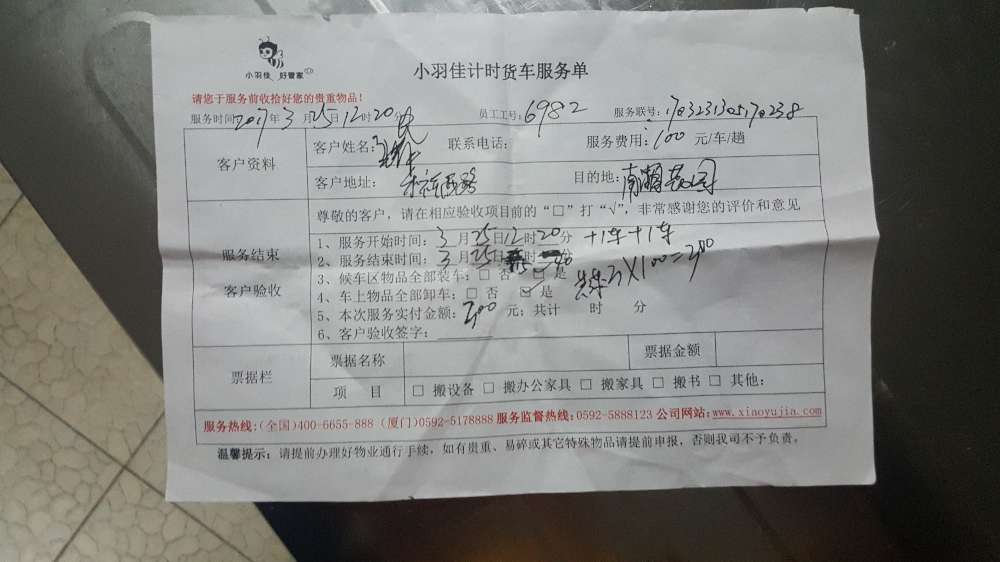 小羽佳 好管家
小羽佳计时货车服务单
请您于服务前收拾好您的贵重物品！
服务时间：2017年3月25日12时20分 员工工号：6982 服务联号：
客户资料
客户姓名： 联系电话： 服务费用：100 元/车/趟
客户地址： 目的地：南湖花园
服务结束
客户验收
尊敬的客户，请在相应验收项目前的“□”打“√”，非常感谢您的评价和意见
1、服务开始时间：3月25日12时20分 +1车+1车
2、服务结束时间：3月25日 时 分
3、候车区物品全部装车：□ 否 □ 是
X100=300
4、车上物品全部卸车：□ 否 ☑ 是
5、本次服务实付金额：300 元；共计 时 分
6、客户验收签字：
票据栏
票据名称 票据金额
项 目 □ 搬设备 □ 搬办公家具 □ 搬家具 □ 搬书 □ 其他：
服务热线：(全国)400-6655-888 (厦门)0592-5178888 服务监督热线：0592-5888123 公司网站：www.xiaoyujia.com
温馨提示：请提前办理好物业通行手续，如有贵重、易碎或其它特殊物品请提前申报，否则我司不予负责。